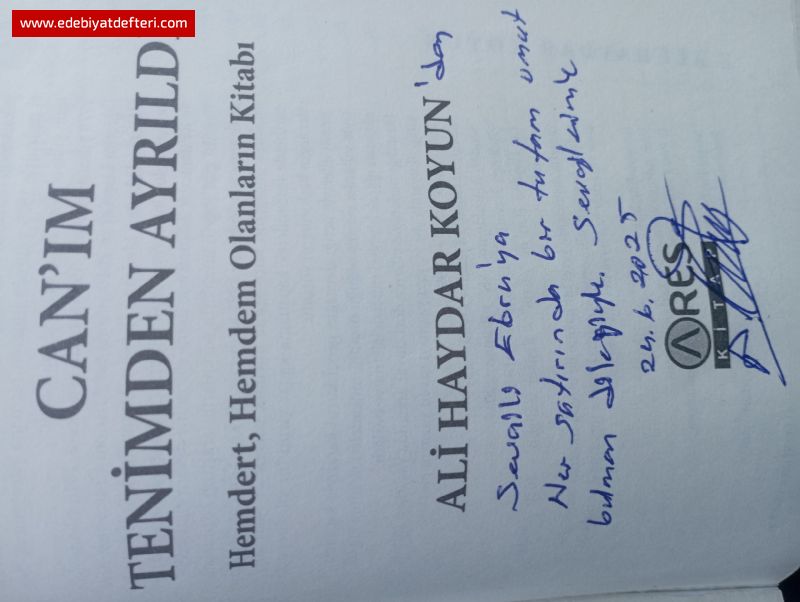 www.edebiyatdefteri.com
CAN'IM
TENİMDEN AYRILD
Hemdert, Hemdem Olanların Kitabı
ALİ HAYDAR KOYUN'dan
Sevgili Ebru'ya
Her satırında bir tutam umut
bulman dileğiyle. Sevgilerimle
24.6.2025
ARES
KİTAP